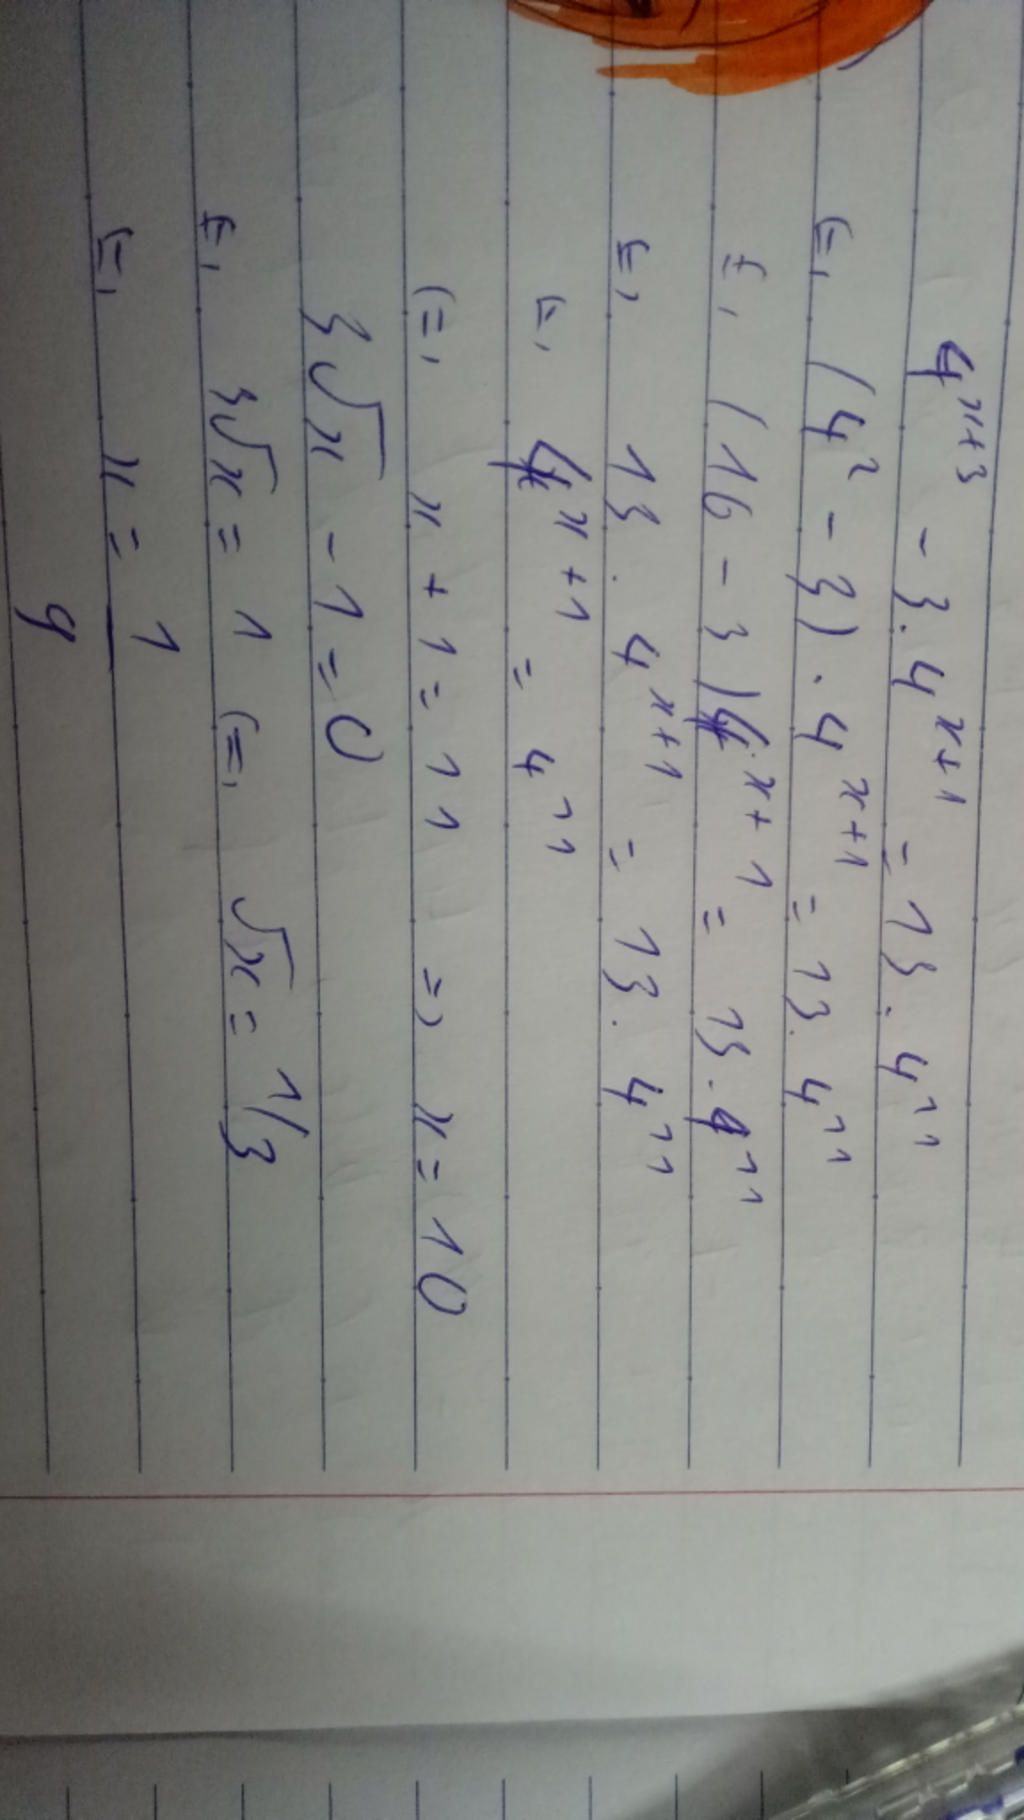 4^{x+3} - 3.4^{x+1} = 13.4^{11}
(=, (4^2 - 3).4^{x+1} = 13.4^{11}
(=, (16 - 3)4^{x+1} = 13.4^{11}
(=, 13.4^{x+1} = 13.4^{11}
(=, 4^{x+1} = 4^{11}
(=, x + 1 = 11 =) x = 10
3√x - 1 = 0
(=, 3√x = 1 (=, √x = 1/3
(=, x = 1/9